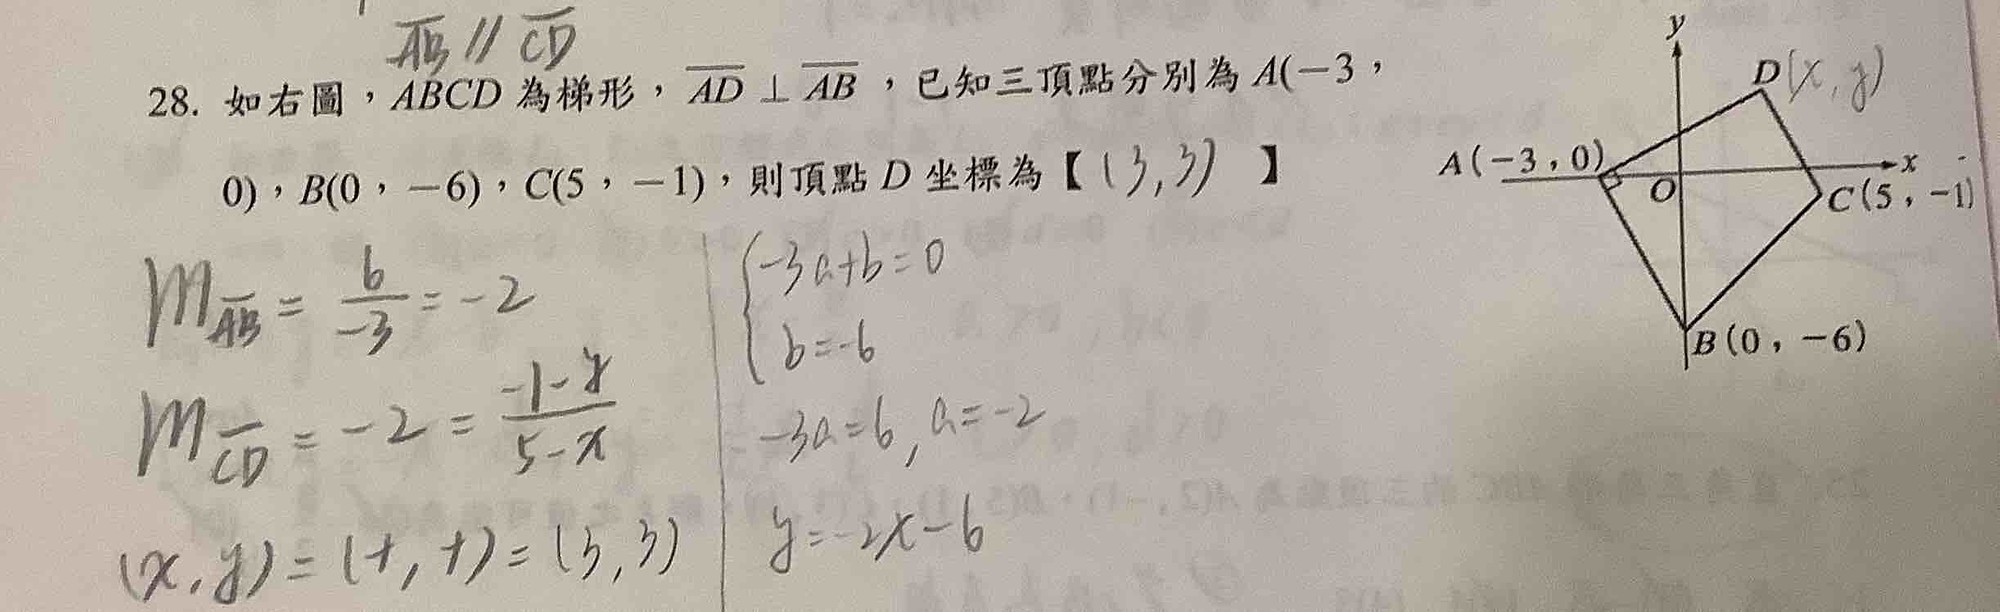 AB // CD
28. 如右圖，ABCD 為梯形，AD ⊥ AB，已知三頂點分別為 A(−3，
0)，B(0，−6)，C(5，−1)，則頂點 D 坐標為【(3,3)】
m AB = 6/-3 = -2
m CD = -2 = -1-y/5-x
(x,y) = (+,+) = (3,3)
-3a+b=0
b=-6
-3a=6, a=-2
y=-2x-6
y
D(x,y)
A(−3，0)
O
x
C(5，−1)
B(0，−6)